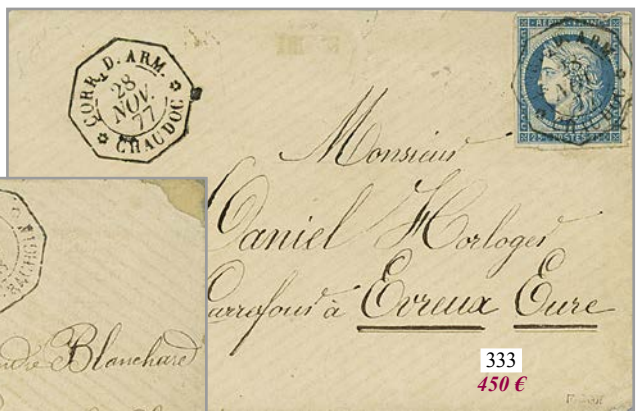 CORR. D. ARM.
28
NOV.
77
CHAUDOC
REPUB. FRANC.
ARM.
28
NOV.
77
Monsieur
Daniel Horloger
Carrefour à Evreux Eure
Blanchard
333
450 €